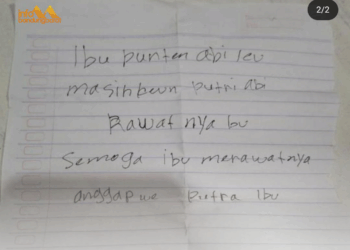 2/2
Ibu punten abi leu
masihkeun putri abi
Rawat nya bu
Semoga ibu merawatnya
anggap we putra Ibu